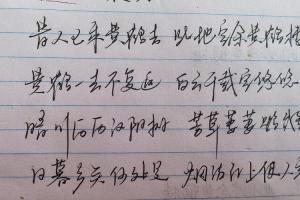 昔人已乘黄鹤去 此地空余黄鹤楼
黄鹤一去不复返 白云千载空悠悠
晴川历历汉阳树 芳草萋萋鹦鹉
日暮乡关何处是 烟波江上使人